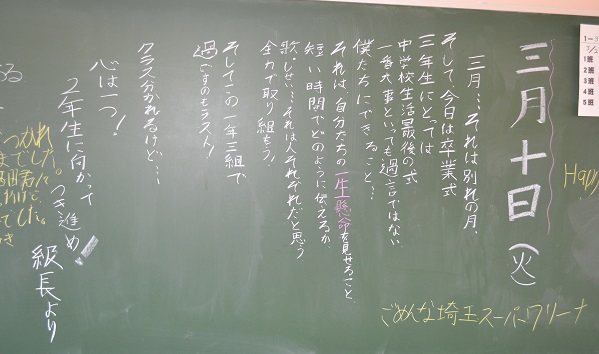 三月十日(火)
三月…それは別れの月、
そして、今日は卒業式
三年生にとっては
中学校生活最後の式
一番大事といっても過言ではない
僕たちにできること…
それは、自分たちの一生懸命を見せること、
短い時間でどのように伝えるか、
歌、しせい…それは人それぞれだと思う
全力で取り組もう!
そしてこの一年三組で
過ごすのもラスト!
クラス分かれるけど…
心は一つ!
2年生に向かって
つき進め!
級長より
ごめんな埼玉スーパーアリーナ
Happy
1班
2班
3班
4班
5班